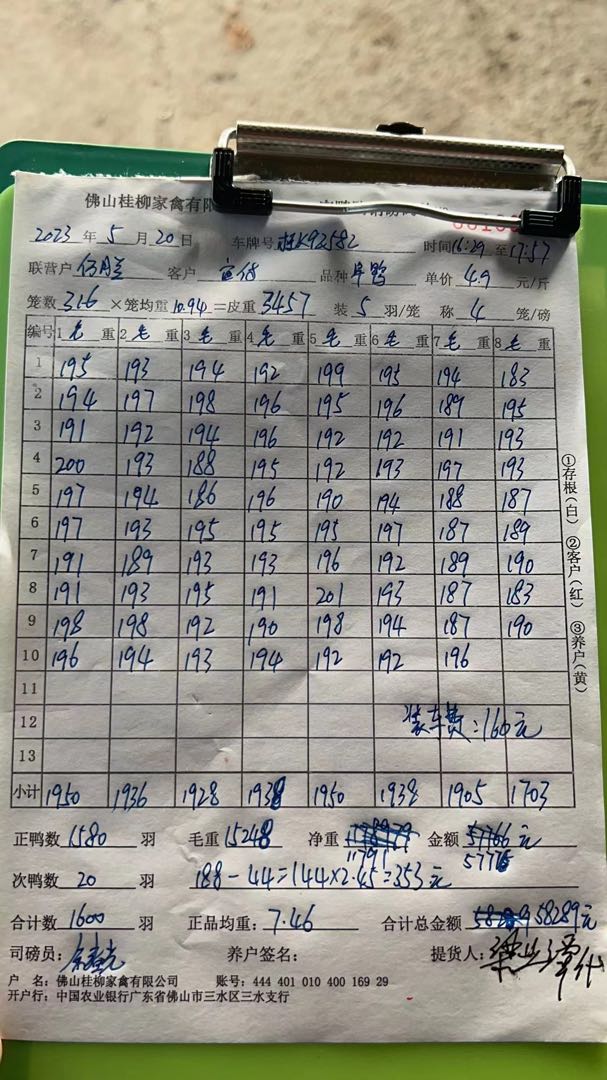 佛山桂柳家禽有限
2023 年 5 月 20 日 车牌号 桂K92582 时间 16:29 至 17:57
联营户 客户 品种 单价 4.9 元/斤
笼数 316 ×笼均重 10.94 =皮重 3457 装 5 羽/笼 称 4 笼/磅
编号 1 毛 重 2 毛 重 3 毛 重 4 毛 重 5 毛 重 6 毛 重 7 毛 重 8 毛 重
1 195 193 194 192 199 195 194 183
2 194 197 198 196 195 196 189 195
3 191 192 194 196 192 192 191 193
4 200 193 188 195 192 193 197 193
5 197 194 186 196 190 194 188 187
6 197 193 195 195 195 197 187 189
7 191 189 193 193 196 192 189 190
8 191 193 195 191 201 193 187 183
9 198 198 192 190 198 194 187 190
10 196 194 193 194 192 192 196
11
12 装车费:160元
13
小计 1950 1936 1928 1938 1950 1938 1905 1703
正鸭数 1580 羽 毛重 15248 净重 11791 金额 57766 元
57776
次鸭数 20 羽 188-44=144×2.45=353元
合计数 1600 羽 正品均重: 7.46 合计总金额 58289元
司磅员: 养户签名: 提货人:
户 名: 佛山桂柳家禽有限公司 账号: 444 401 010 400 169 29
开户行: 中国农业银行广东省佛山市三水区三水支行
①存根(白) ②客户(红) ③养户(黄)